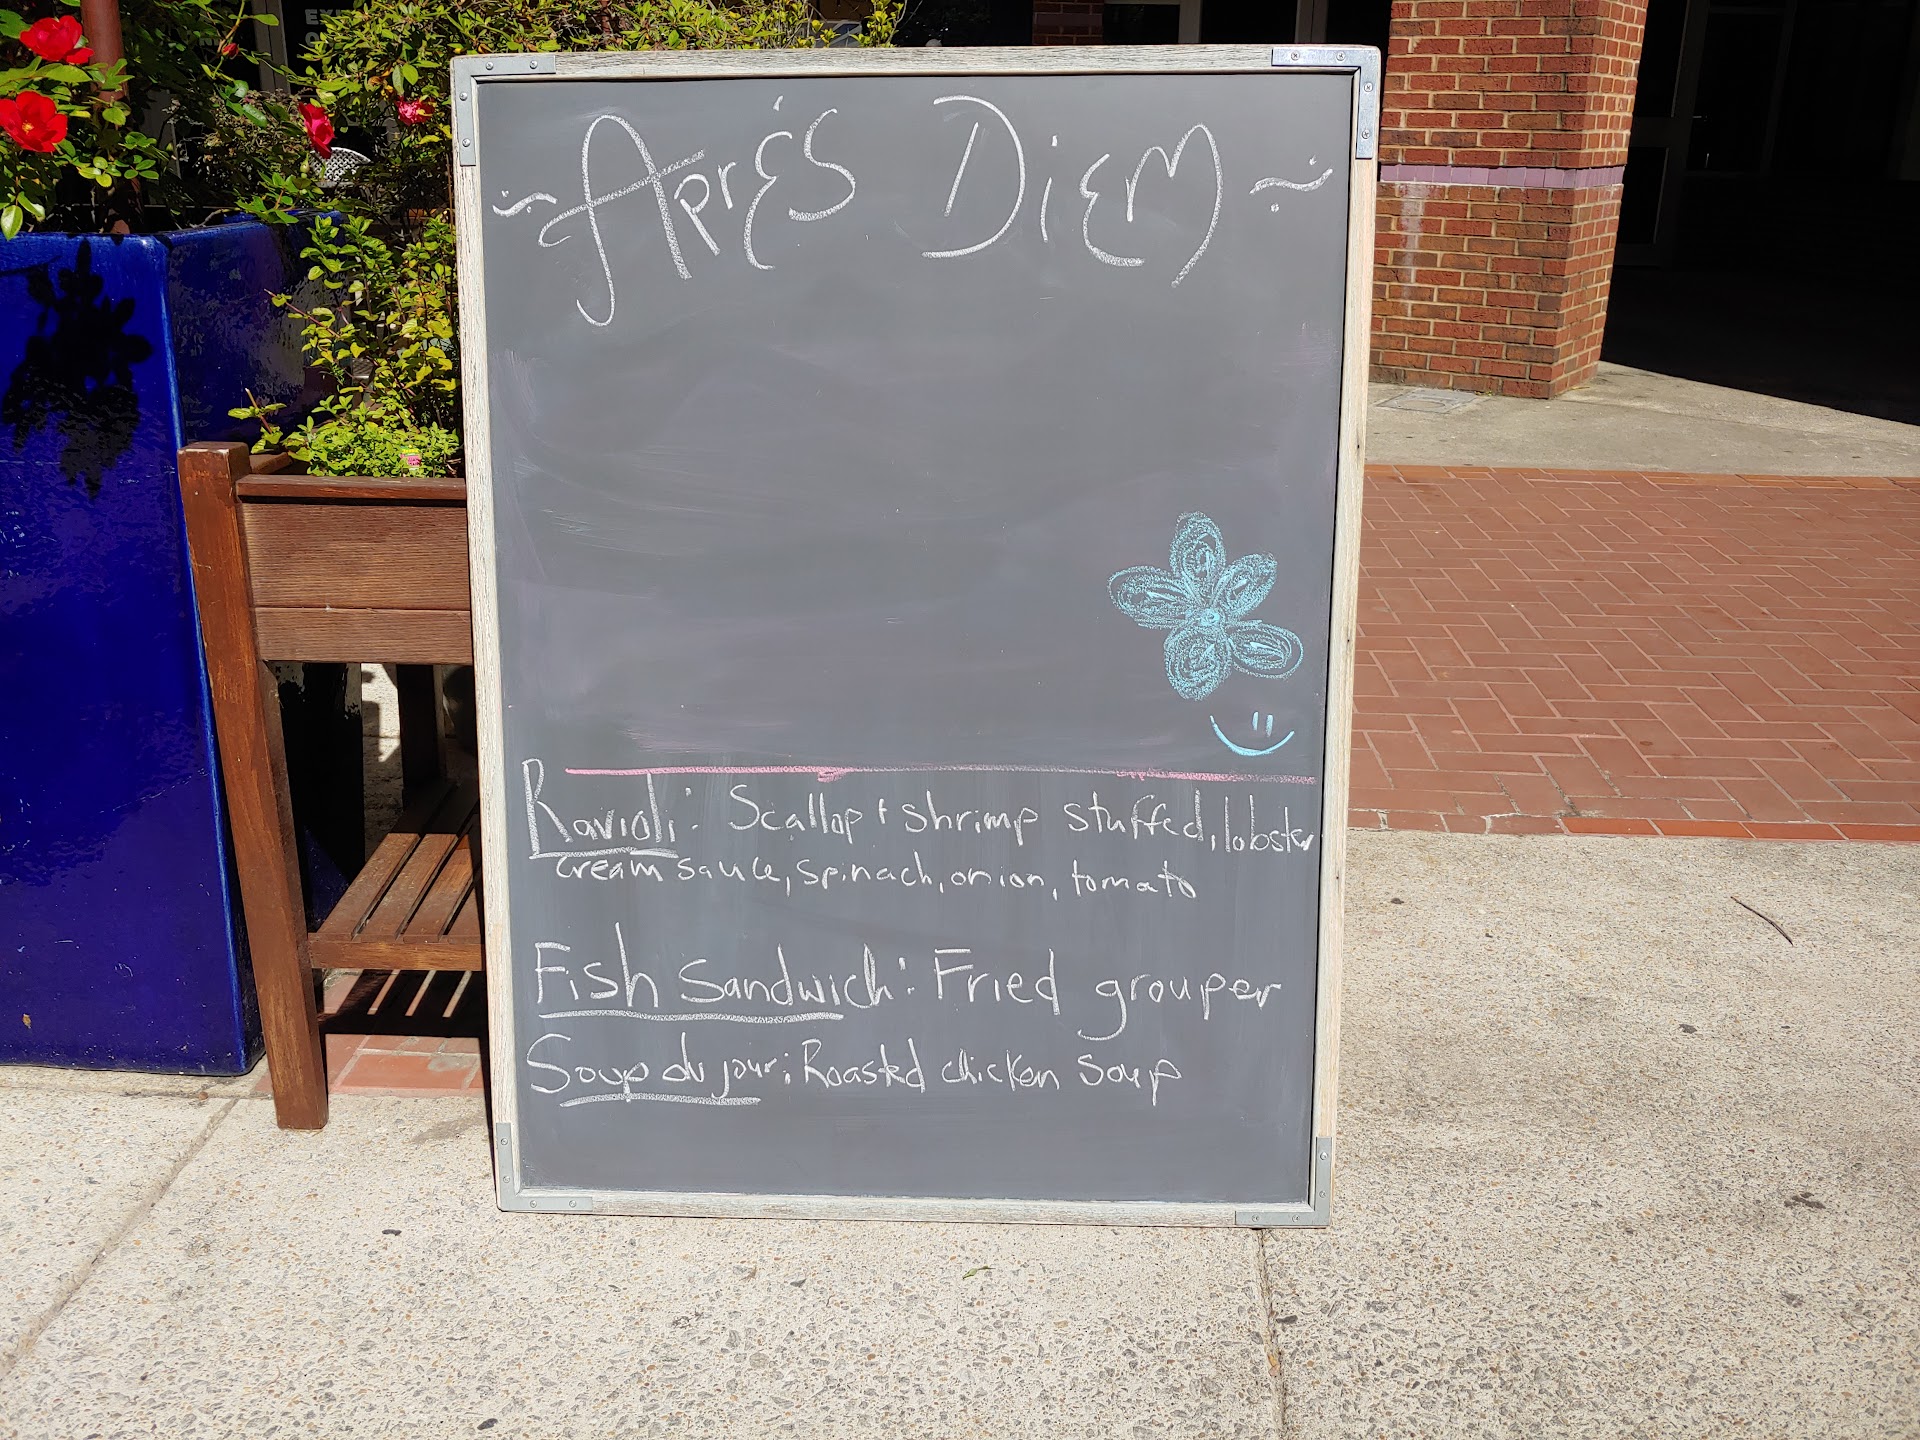 ~ Aprés Diem ~
Ravioli: Scallop + shrimp stuffed, lobster
cream sauce, spinach, onion, tomato
Fish Sandwich: Fried grouper
Soup du jour: Roasted chicken soup